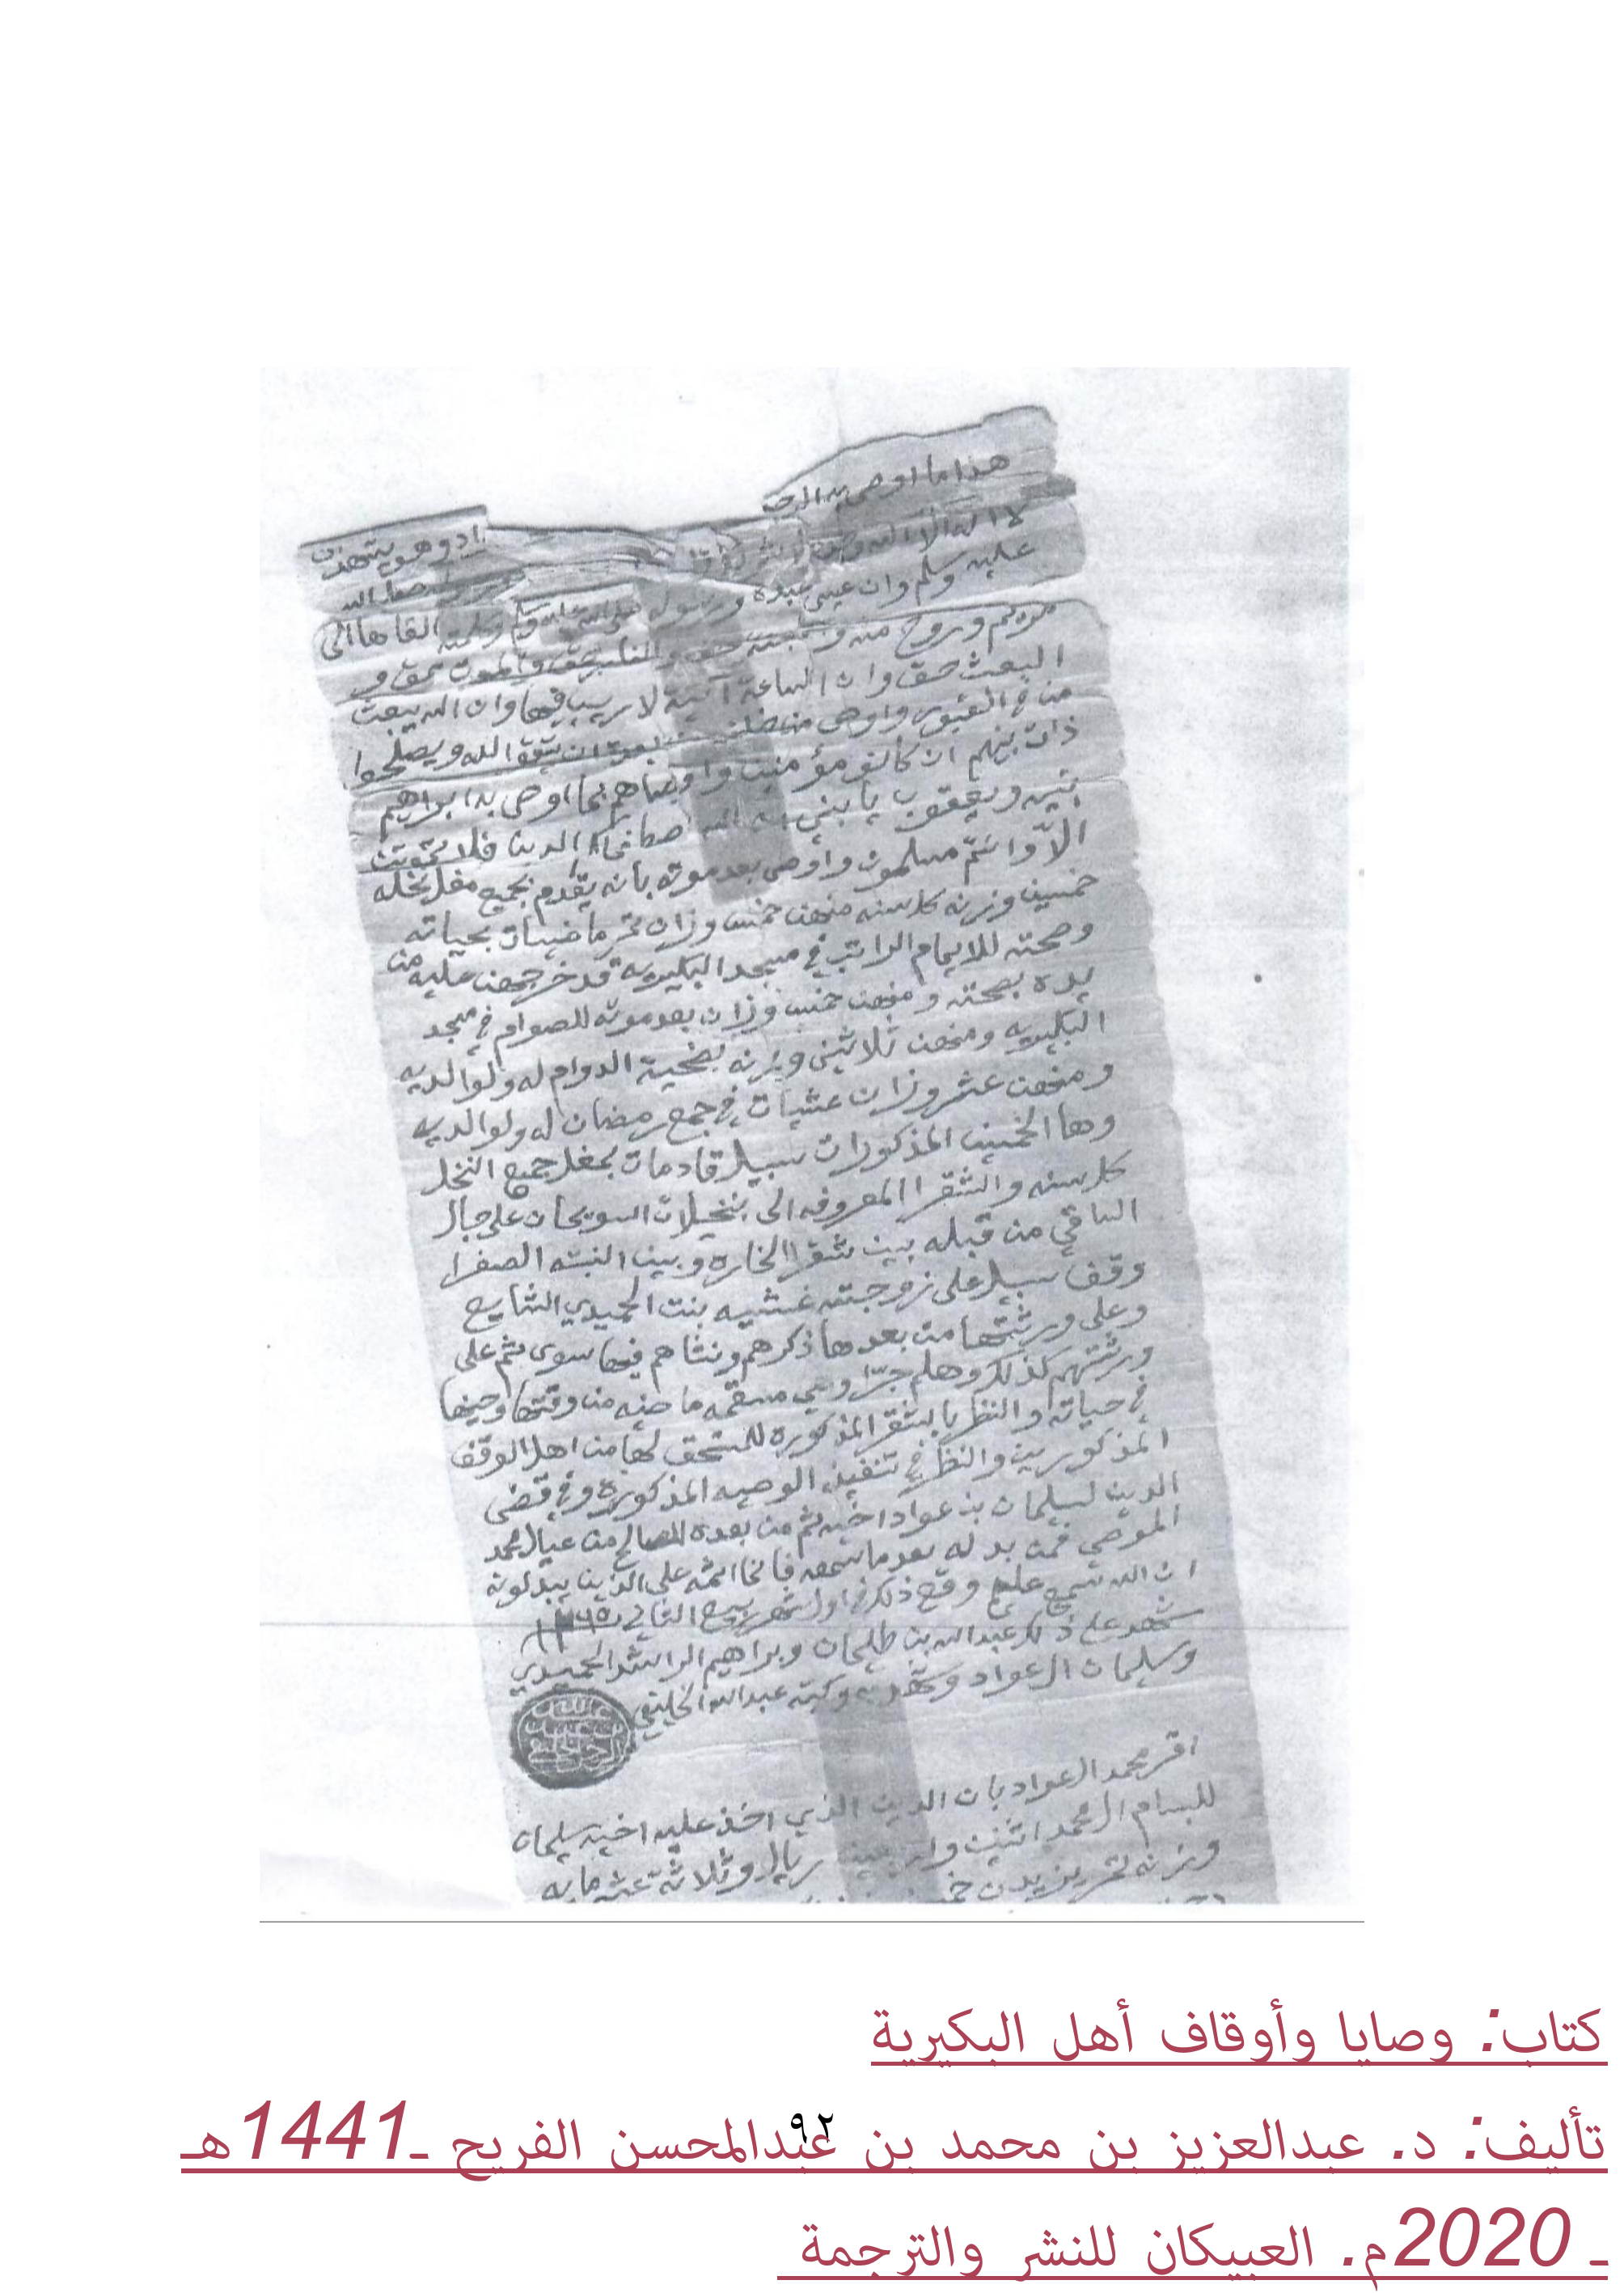 هذا ما اوصى به
ادوهو يشهد ان
لا اله الا الله
صلى الله
عليه وسلم وان عيسى عبده ورسوله وكلمته القاها الى
مريم وروح منه والجنه حق والنار حق والموت حق و
البعث حق وان الساعة آتية لا ريب فيها وان الله يبعث
من في القبور واوصى من بعده ان يتقو الله ويصلحوا
ذات بينهم ان كانو مؤمنين واوصاهم بما اوصى به ابراهيم
بنيه ويعقوب يا بني ان الله اصطفى لكم الدين فلا تموتن
الا وانتم مسلمون واوصى بعد موته بانه يقدم بجميع مغل نخله
خمسين وزنه كل سنه منهن خمس وزان تمر ماضيات بحياته
وصحته للامام الراتب في مسجد البكيريه قد خرجهن عليه من
يده بصحته ومنهن خمس وزان بعد موته للصوام في مسجد
البكيريه ومنهن ثلاثين وزنه بضحية الدوام له ولوالديه
ومنهن عشر وزان عشيات في جمع رمضان له ولوالديه
وها الخمسين المذكورات سبيل قادمات بمغل جميع النخل
كل سنه والشقرا المعروفه الى بنخيلات السويحان على جال
الساقي من قبله بين شقرا الخاره وبين النبته الصفرا
وقف سبيل على زوجته غشيه بنت الحميدي الشايع
وعلى ورثتها من بعدها ذكرهم ونثاهم فيها سوى ثم على
ورثتهم كذلك وهلم جرّا وهي مسقمه ماضيه من وقتها وحينها
في حياته والنظر بالشقر المذكورة للمستحق لها من اهل الوقف
المذكورين والنظر في تنفيذ الوصيه المذكورة وفي قضى
الدين لسليمان بن عواد اخيه ثم من بعده الصالح من عيال محمد
الموصي فمن بدله بعدما سمعه فانما اثمه على الذين يبدلونه
ان الله سميع عليم وقع ذلك في اول شهر ربيع الثاني
شهد على ذلك عبدالله بن طليحان وبراهيم الراشد الحميدي
وسليمان العواد وشهد به وكتبه عبدالله الخليفي
اقر محمد العواد بان الدين الذي اخذ عليه اخيه سليمان
للبسام المحمد اثنين واربعين ريال وثلاثة عشر مايه
وزنه تمر يزيدن
كتاب: وصايا وأوقاف أهل البكيرية
تأليف: د. عبدالعزيز بن محمد بن عبدالمحسن الفريح ـ1441هـ
٩٢
ـ 2020م. العبيكان للنشر والترجمة